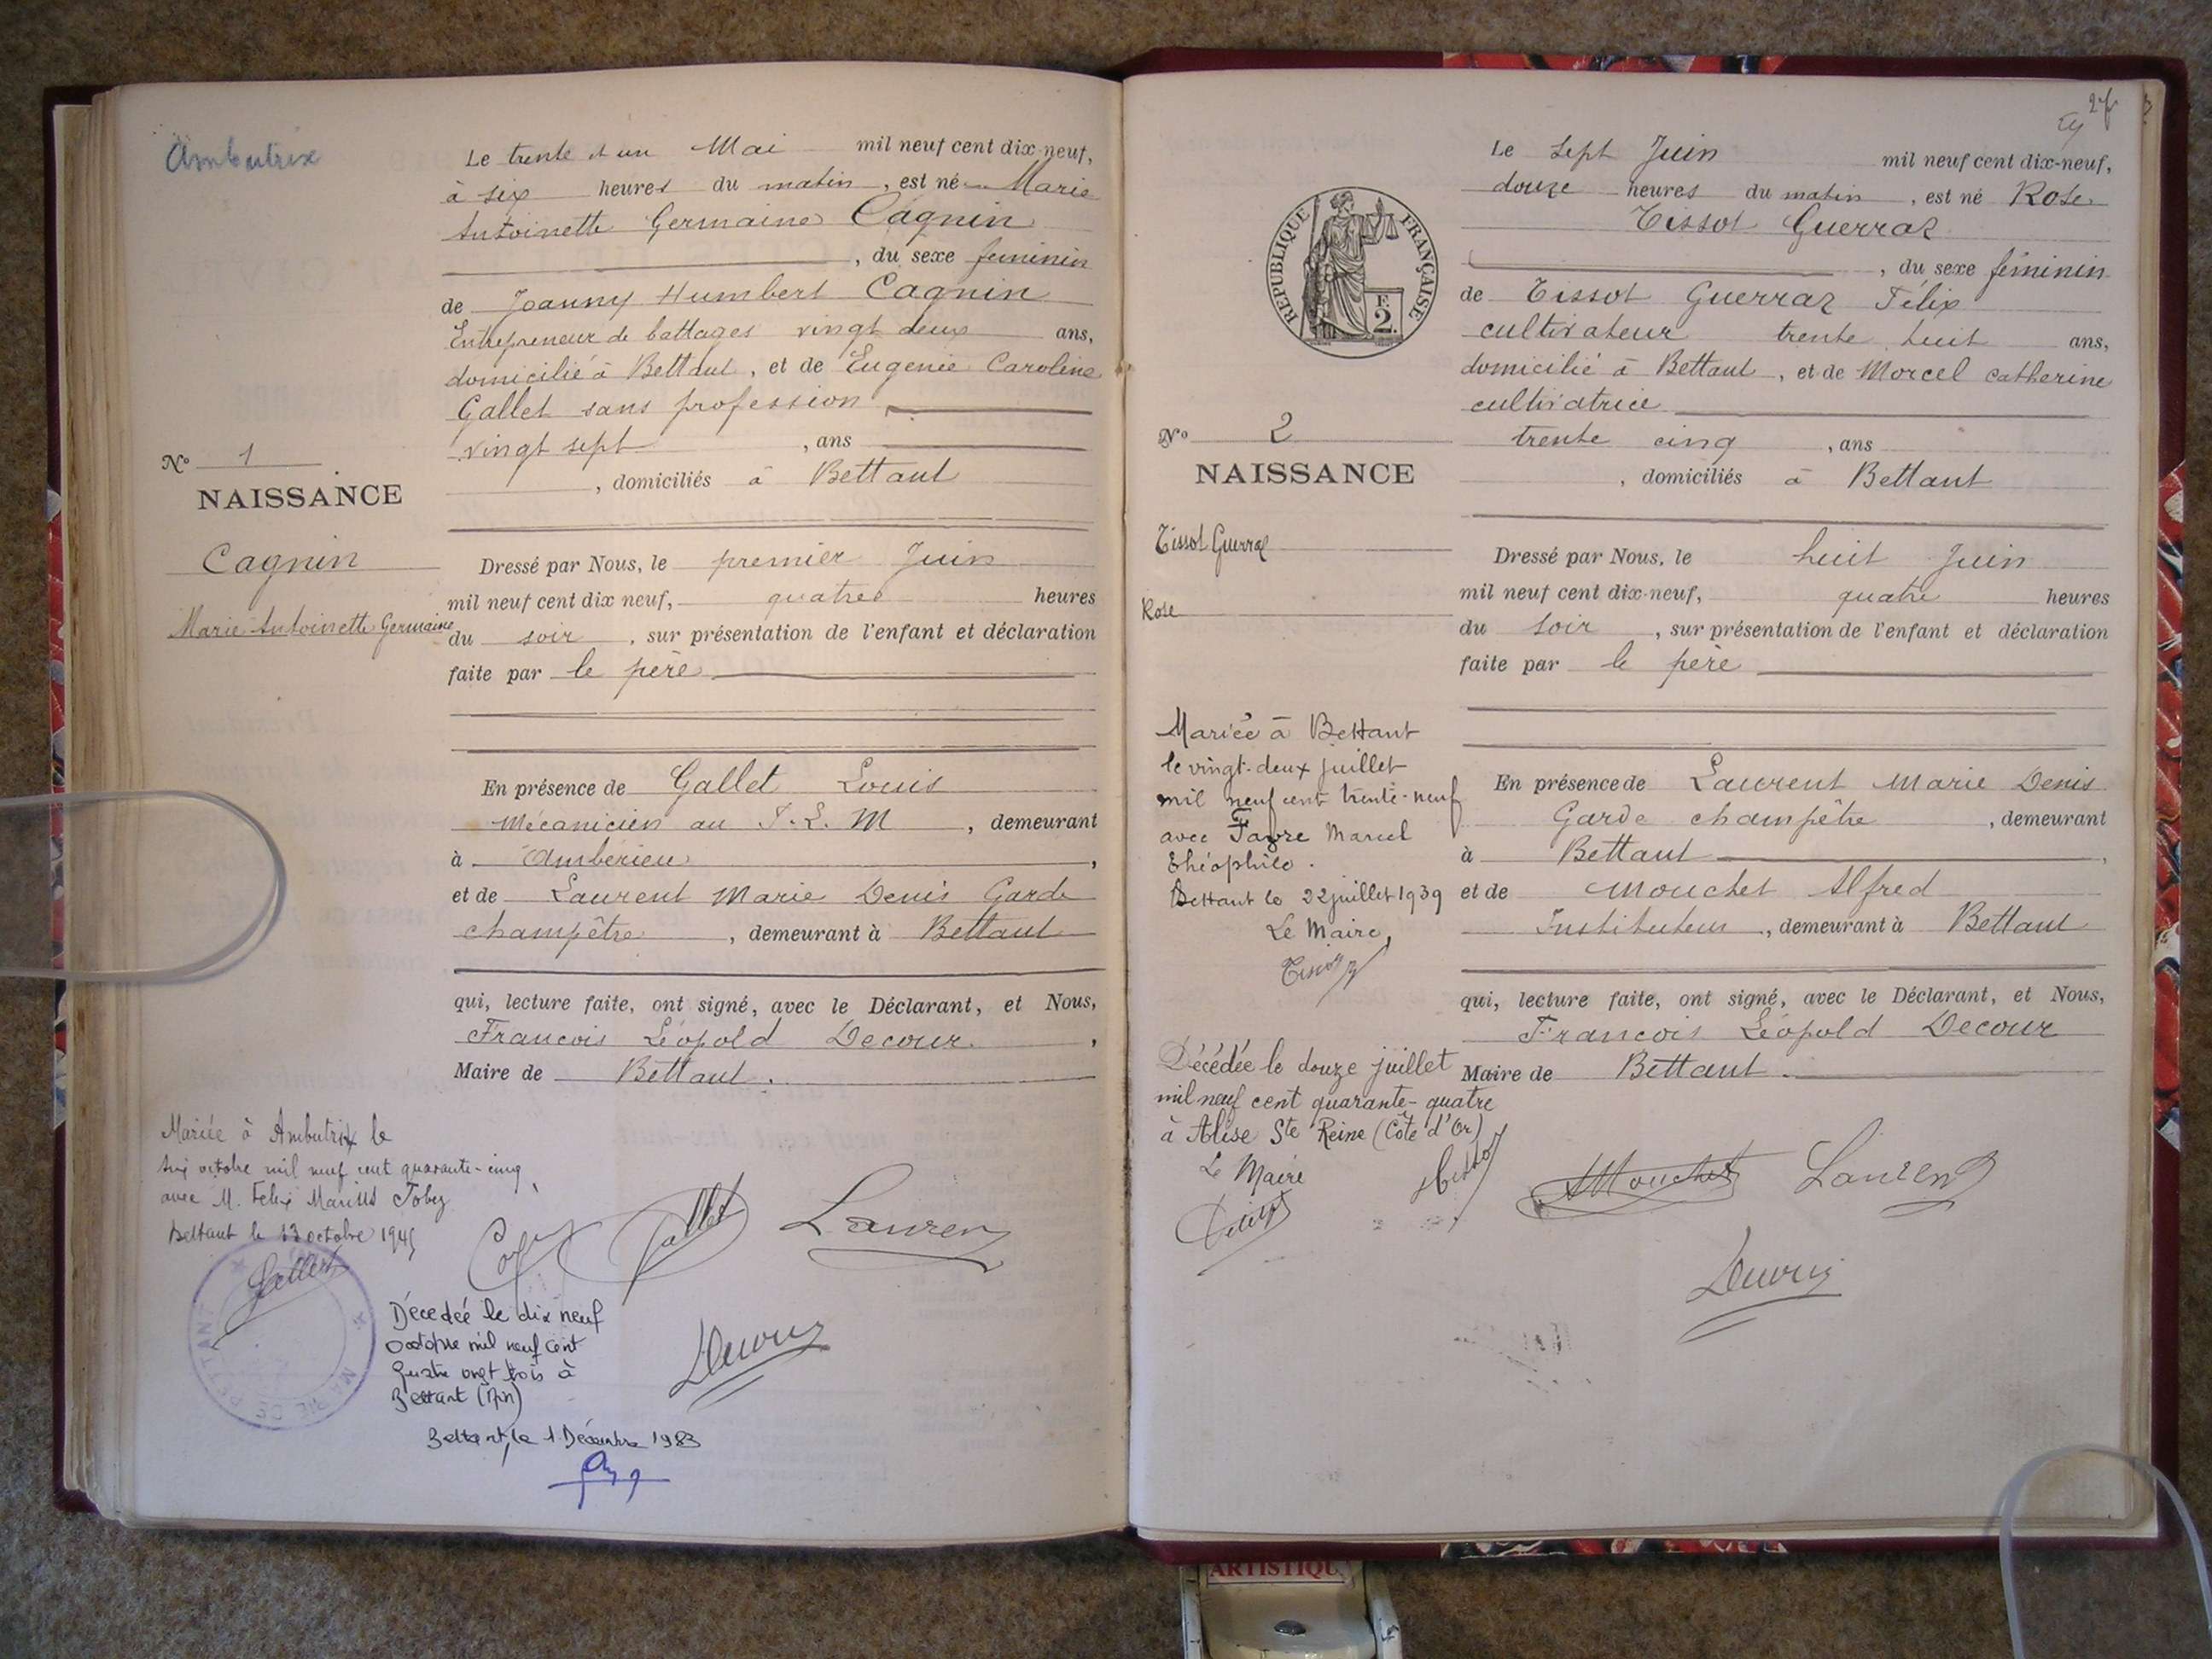 Ambutrix
Le trente et un Mai mil neuf cent dix-neuf,
à six heures du matin, est né Marie
Antoinette Germaine Cagnin
, du sexe féminin
de Joanny Humbert Cagnin
Entrepreneur de battages vingt deux ans,
domicilié à Bettant, et de Eugenie Caroline
Gallet sans profession
vingt sept, ans
, domiciliés à Bettant
N° 1
NAISSANCE
Cagnin
Marie Antoinette Germaine
Dressé par Nous, le premier Juin
mil neuf cent dix neuf, quatre heures
du soir, sur présentation de l'enfant et déclaration
faite par le père
En présence de Gallet Louis
Mécanicien au P.L.M, demeurant
à Ambérieu,
et de Laurent Marie Denis Garde
champêtre, demeurant à Bettant
qui, lecture faite, ont signé, avec le Déclarant, et Nous,
Francois Léopold Decour,
Maire de Bettant.
Mariée à Ambutrix le
six octobre mil neuf cent quarante-cinq
avec M. Felix Marius
Bettant le 13 octobre 1945
Gallet
Laurent
MAIRIE DE BETTANT
Décedée le dix neuf
octobre mil neuf cent
quatre vingt trois à
Bettant (Ain)
Bettant, le 1 Décembre 1983
Decour
27
Le sept Juin mil neuf cent dix-neuf,
douze heures du matin, est né Rose
Tissot Guerraz
, du sexe féminin
de Tissot Guerraz Félix
cultivateur trente huit ans,
domicilié à Bettant, et de Morcel Catherine
cultivatrice
trente cinq, ans
, domiciliés à Bettant
REPUBLIQUE FRANÇAISE
F.
2.
N° 2
NAISSANCE
Tissot Guerraz
Rose
Dressé par Nous, le huit Juin
mil neuf cent dix-neuf, quatre heures
du soir, sur présentation de l'enfant et déclaration
faite par le père
En présence de Laurent Marie Denis
Garde champêtre, demeurant
à Bettant,
et de Mouchet Alfred
Instituteur, demeurant à Bettant
qui, lecture faite, ont signé, avec le Déclarant, et Nous,
Francois Léopold Decour
Maire de Bettant.
Mariée à Bettant
le vingt-deux juillet
mil neuf cent trente-neuf
avec Favre Marcel
Théophile.
Bettant le 22 juillet 1939
Le Maire,
Décédée le douze juillet
mil neuf cent quarante-quatre
à Alise Ste Reine (Côte d'Or)
Le Maire
Tissot
AMouchet
Laurent
Decour
ARTISTIQU